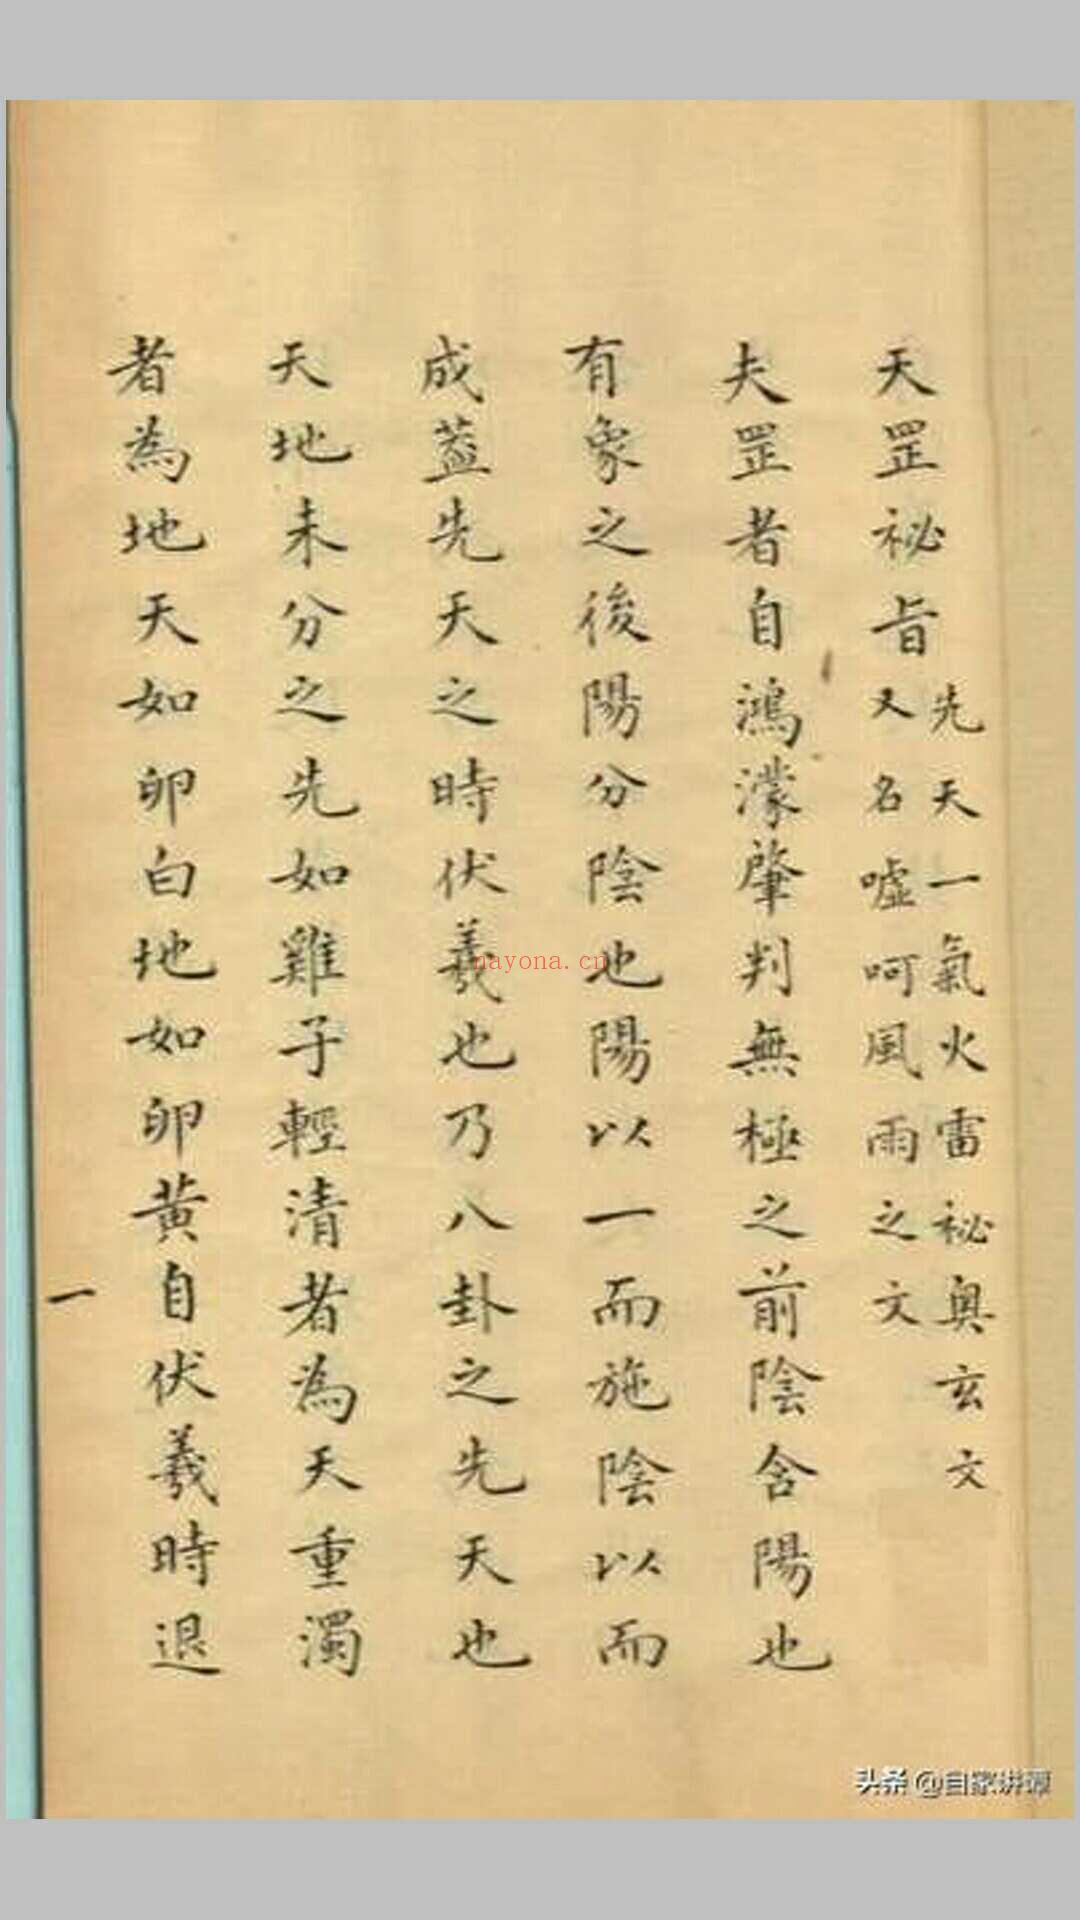 天罡祕旨
先天一氣火雷祕奥玄文
又名噓呵風雨之文
夫罡者自鴻濛肇判無極之前陰含陽也
有象之後陽分陰也陽以一而施陰以而
成蓋先天之時伏羲也乃八卦之先天也
天地未分之先如雞子輕清者為天重濁
者為地天如卵白地如卵黄自伏羲時退
一
nayona.cn
头条 @自家讲谭